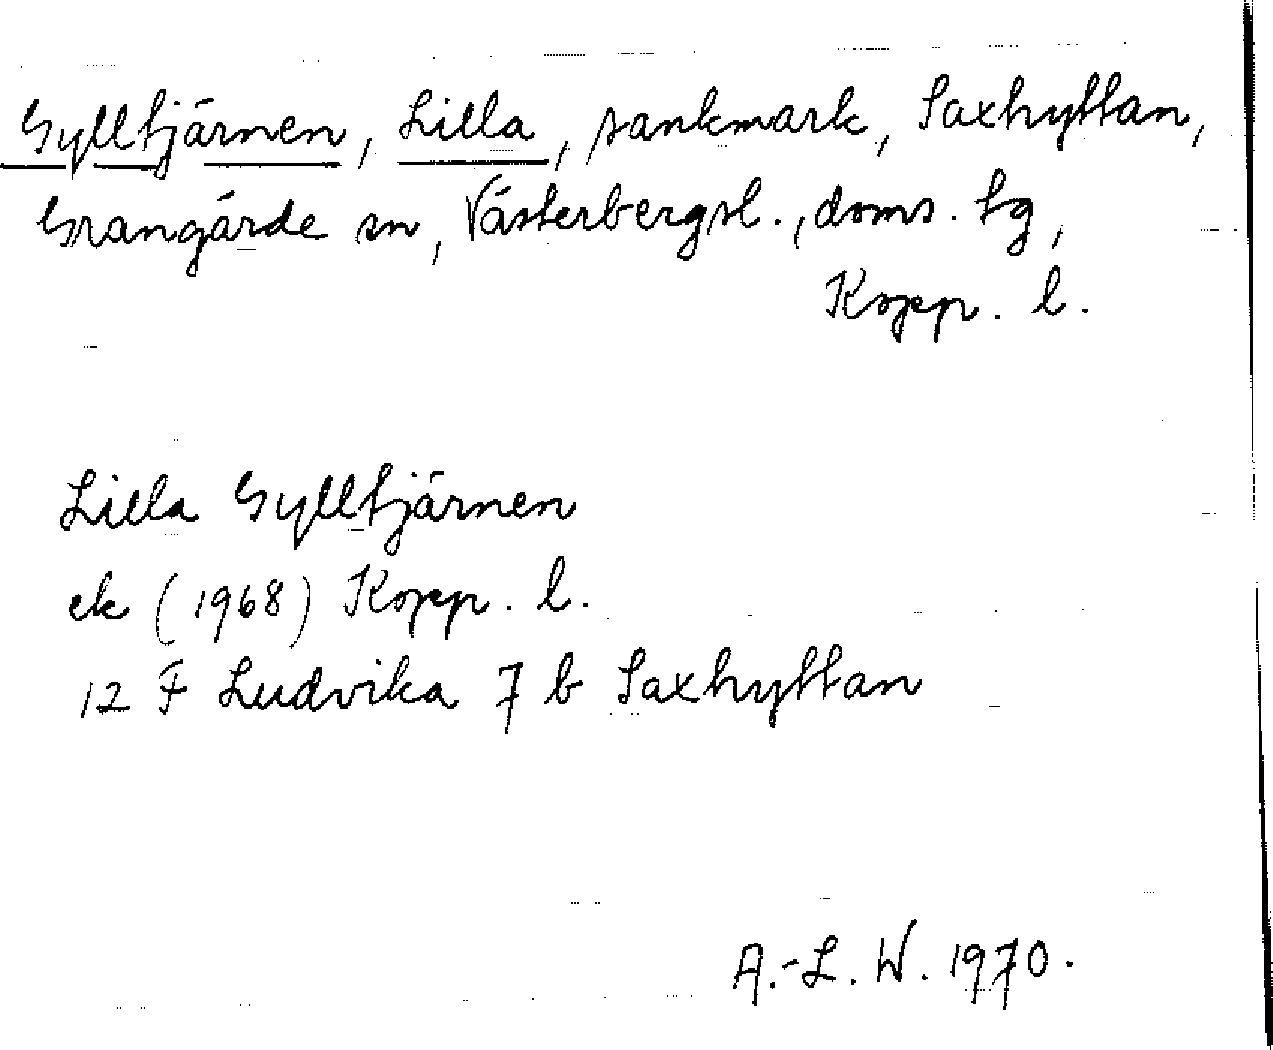 Gylltjärnen, Lilla, sankmark, Saxhyttan,
Grangärde sn, Västerbergsl., doms. tg,
Kopp. l.
Lilla Gylltjärnen
ek (1968) Kopp. l.
12 F Ludvika 7 b Saxhyttan
A.-L. W. 1970.